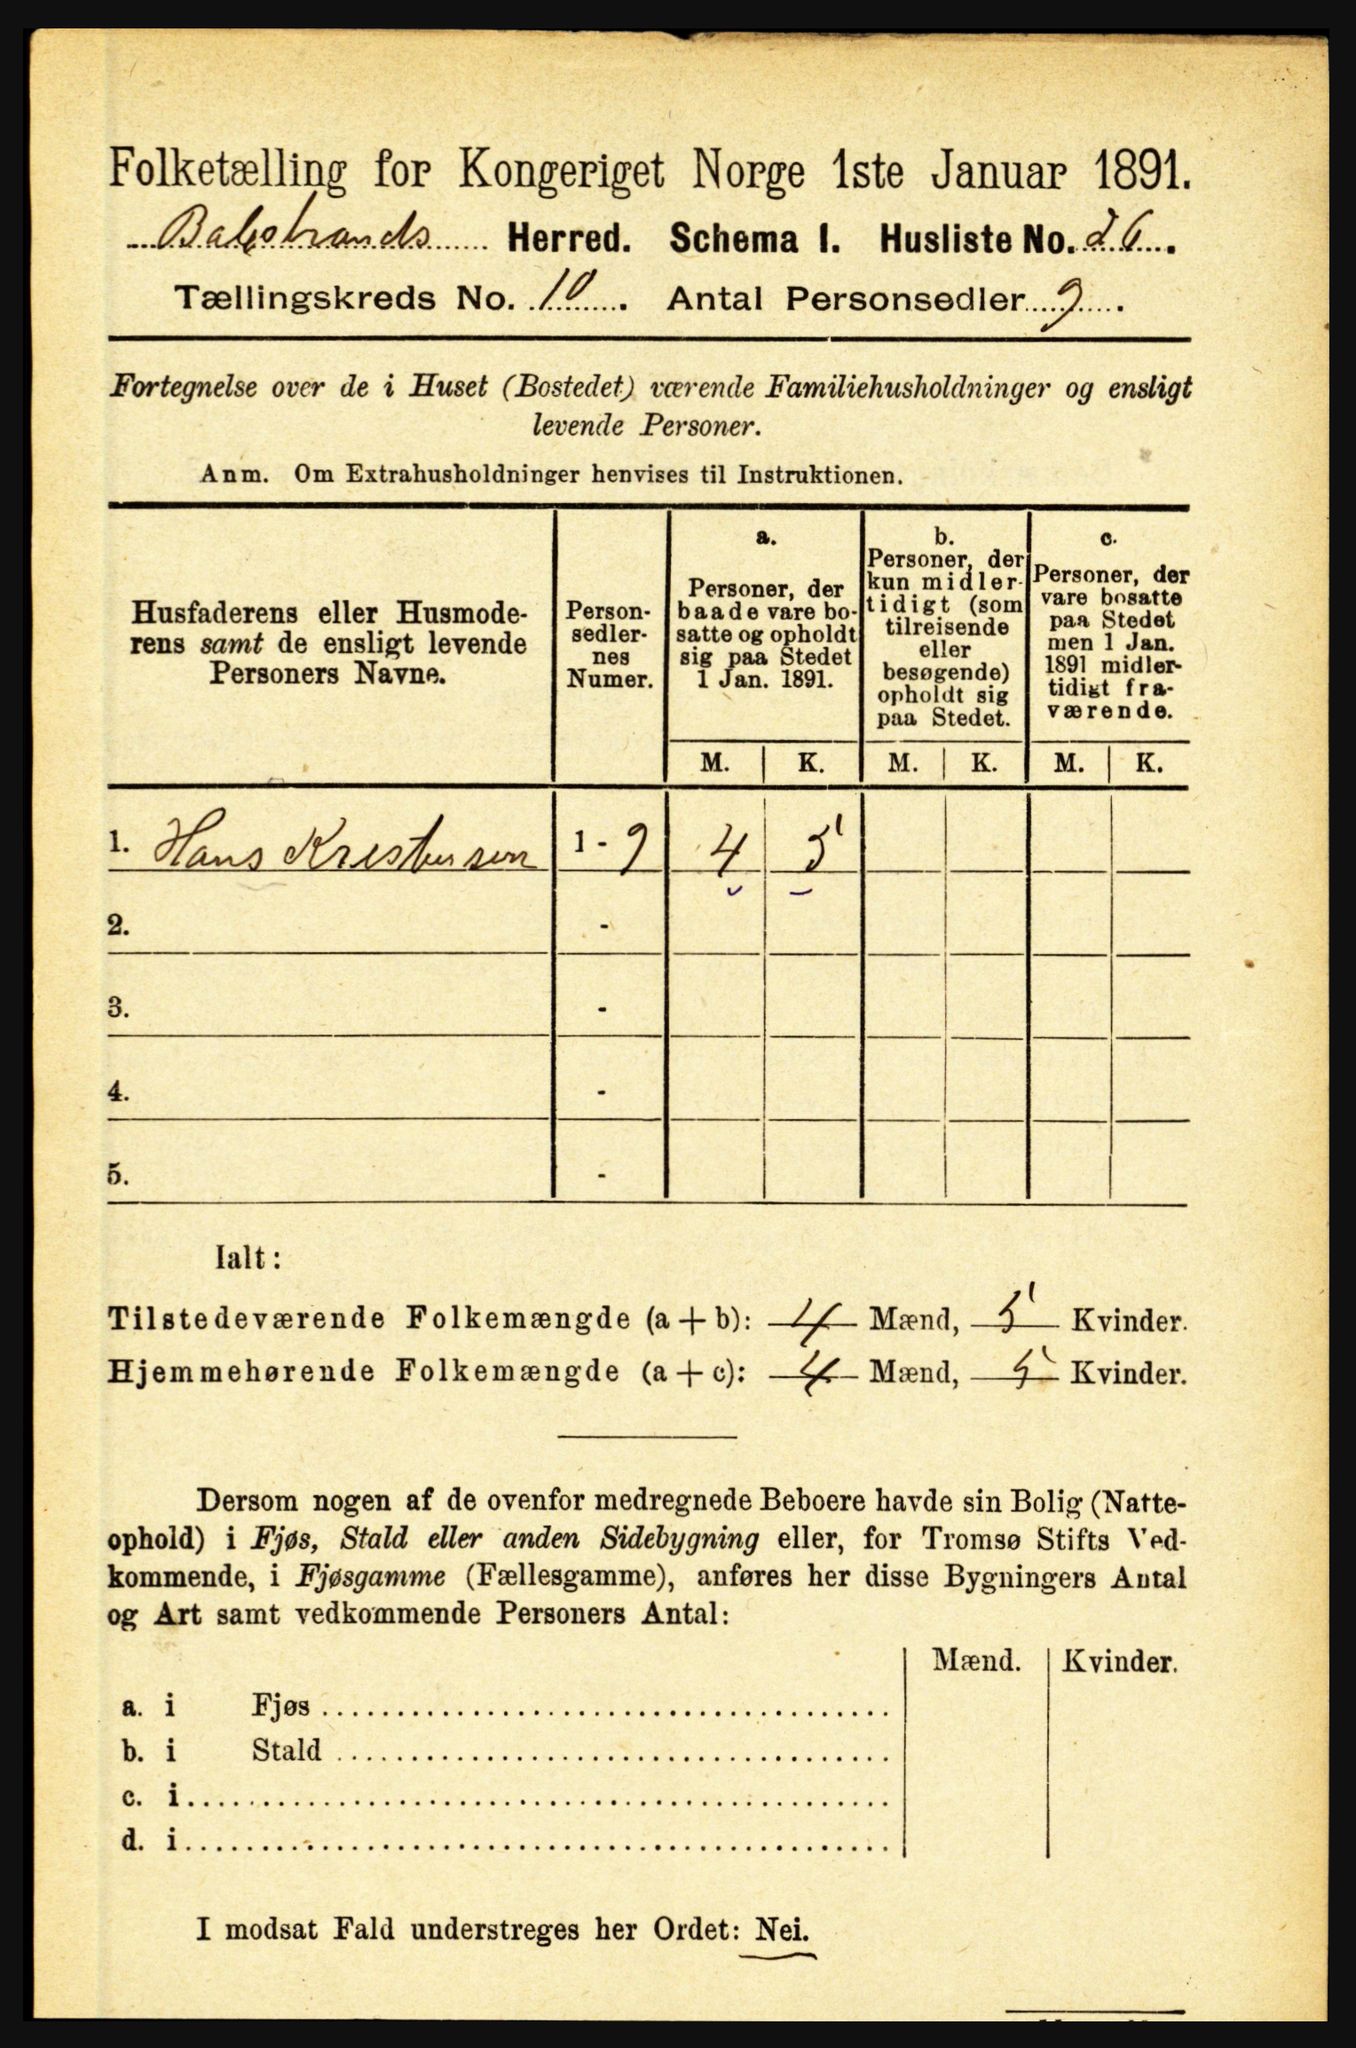 Folketælling for Kongeriget Norge 1ste Januar 1891.
Balestrands Herred. Schema I. Husliste No. 26.
Tællingskreds No. 10. Antal Personsedler 9.
Fortegnelse over de i Huset (Bostedet) værende Familiehusholdninger og ensligt
levende Personer.
Anm. Om Extrahusholdninger henvises til Instruktionen.
Husfaderens eller Husmode-
rens samt de ensligt levende
Personers Navne.
Person-
sedler-
nes
Numer.
a.
Personer, der
baade vare bo-
satte og opholdt
sig paa Stedet
1 Jan. 1891.
b.
Personer, der
kun midler-
tidigt (som
tilreisende
eller
besøgende)
opholdt sig
paa Stedet.
c.
Personer, der
vare bosatte
paa Stedet
men 1 Jan.
1891 midler-
tidigt fra-
værende.
M. K. M. K. M. K.
1. Hans Kristensen 1 - 9 4 5
2. -
3. -
4. -
5. -
Ialt:
Tilstedeværende Folkemængde (a + b): 4 Mænd, 5 Kvinder.
Hjemmehørende Folkemængde (a + c): 4 Mænd, 5 Kvinder.
Dersom nogen af de ovenfor medregnede Beboere havde sin Bolig (Natte-
ophold) i Fjøs, Stald eller anden Sidebygning eller, for Tromsø Stifts Ved-
kommende, i Fjøsgamme (Fællesgamme), anføres her disse Bygningers Antal
og Art samt vedkommende Personers Antal:
Mænd. Kvinder.
a. i Fjøs
b. i Stald
c. i
d. i
I modsat Fald understreges her Ordet: Nei.